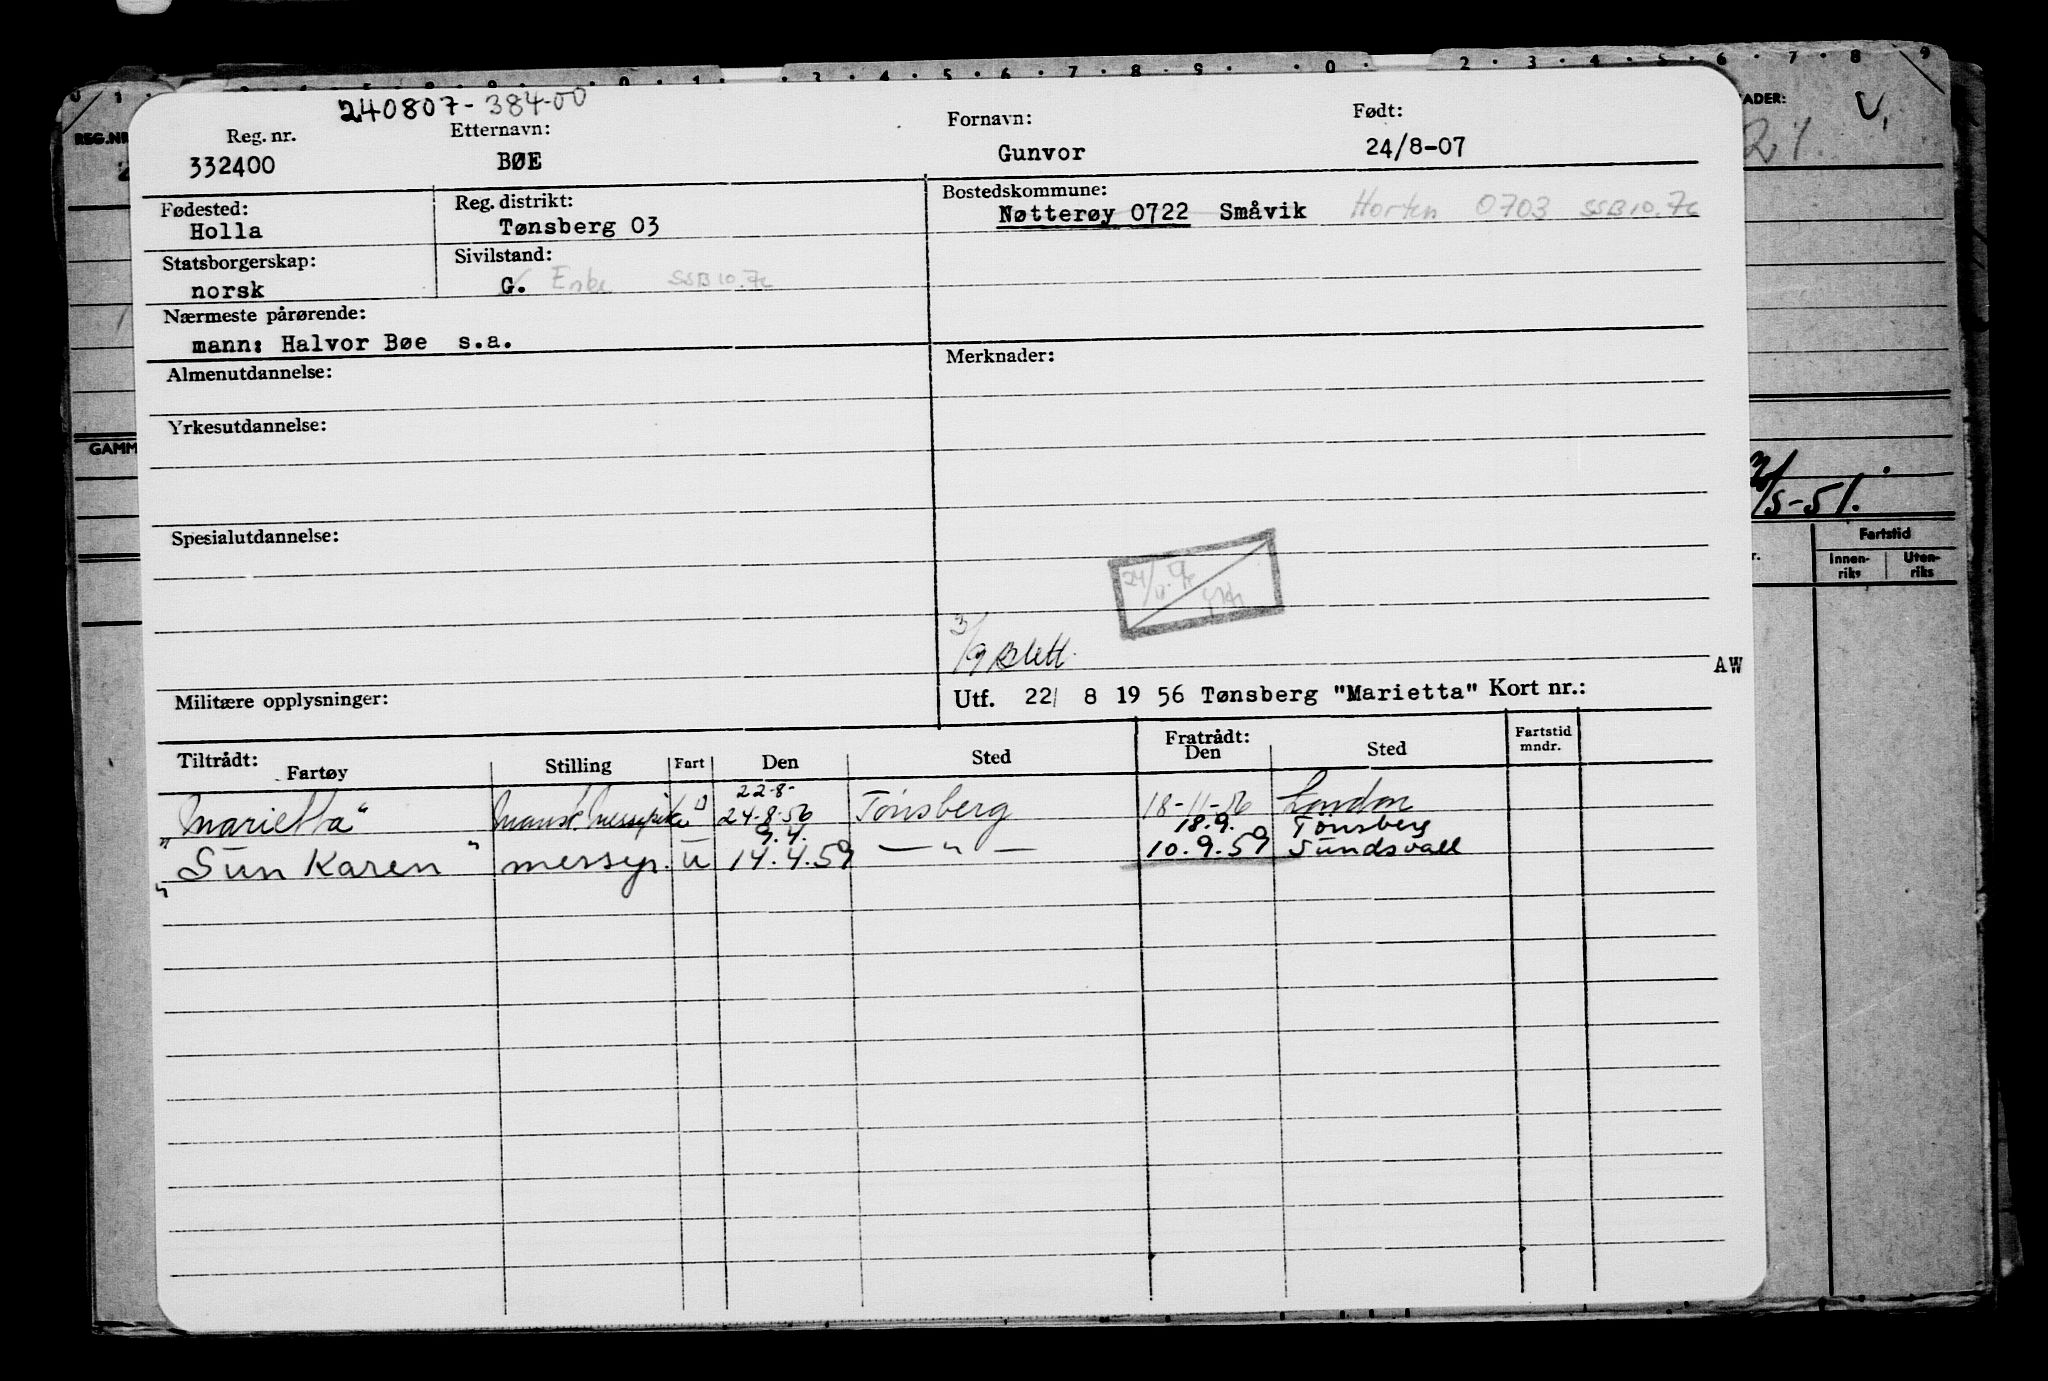 240807-384-00
Reg. nr. Etternavn: Fornavn: Født:
332400 BØE Gunvor 24/8-07
Fødested: Reg. distrikt: Bostedskommune:
Holla Tønsberg 03 Nøtterøy 0722 Småvik Horten 0703 SSB 10.7c
Statsborgerskap: Sivilstand:
norsk G. Enke SSB 10.7c
Nærmeste pårørende:
mann: Halvor Bøe s.a.
Almenutdannelse: Merknader:
Yrkesutdannelse:
Spesialutdannelse:
3/9 Slett.
AW
Militære opplysninger: Utf. 22/ 8 19 56 Tønsberg "Marietta" Kort nr.:
Tiltrådt: Fratrådt: Fartstid
Fartøy Stilling Fart Den Sted Den Sted mndr.
22-8-
"Marietta" U 24-8-56 Tønsberg 18-11-56 London
9.4. 18.9. Tønsberg
"Sun Karen" messep. U 14.4.59 — " — 10.9.59 Sundsvall
REG.NR
GAMM
ADER:
21.
/5-51.
Fartstid
r. Innen-riks Uten-riks